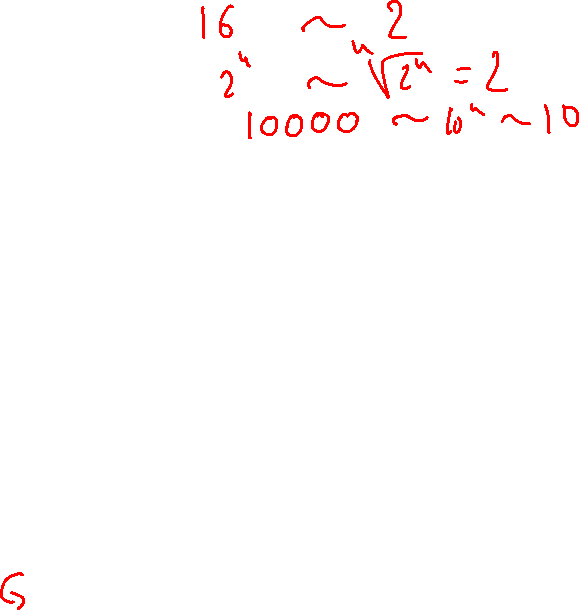 16 ~ 2
2⁴ ~ ⁴√2⁴ = 2
10000 ~ 10⁴ ~ 10